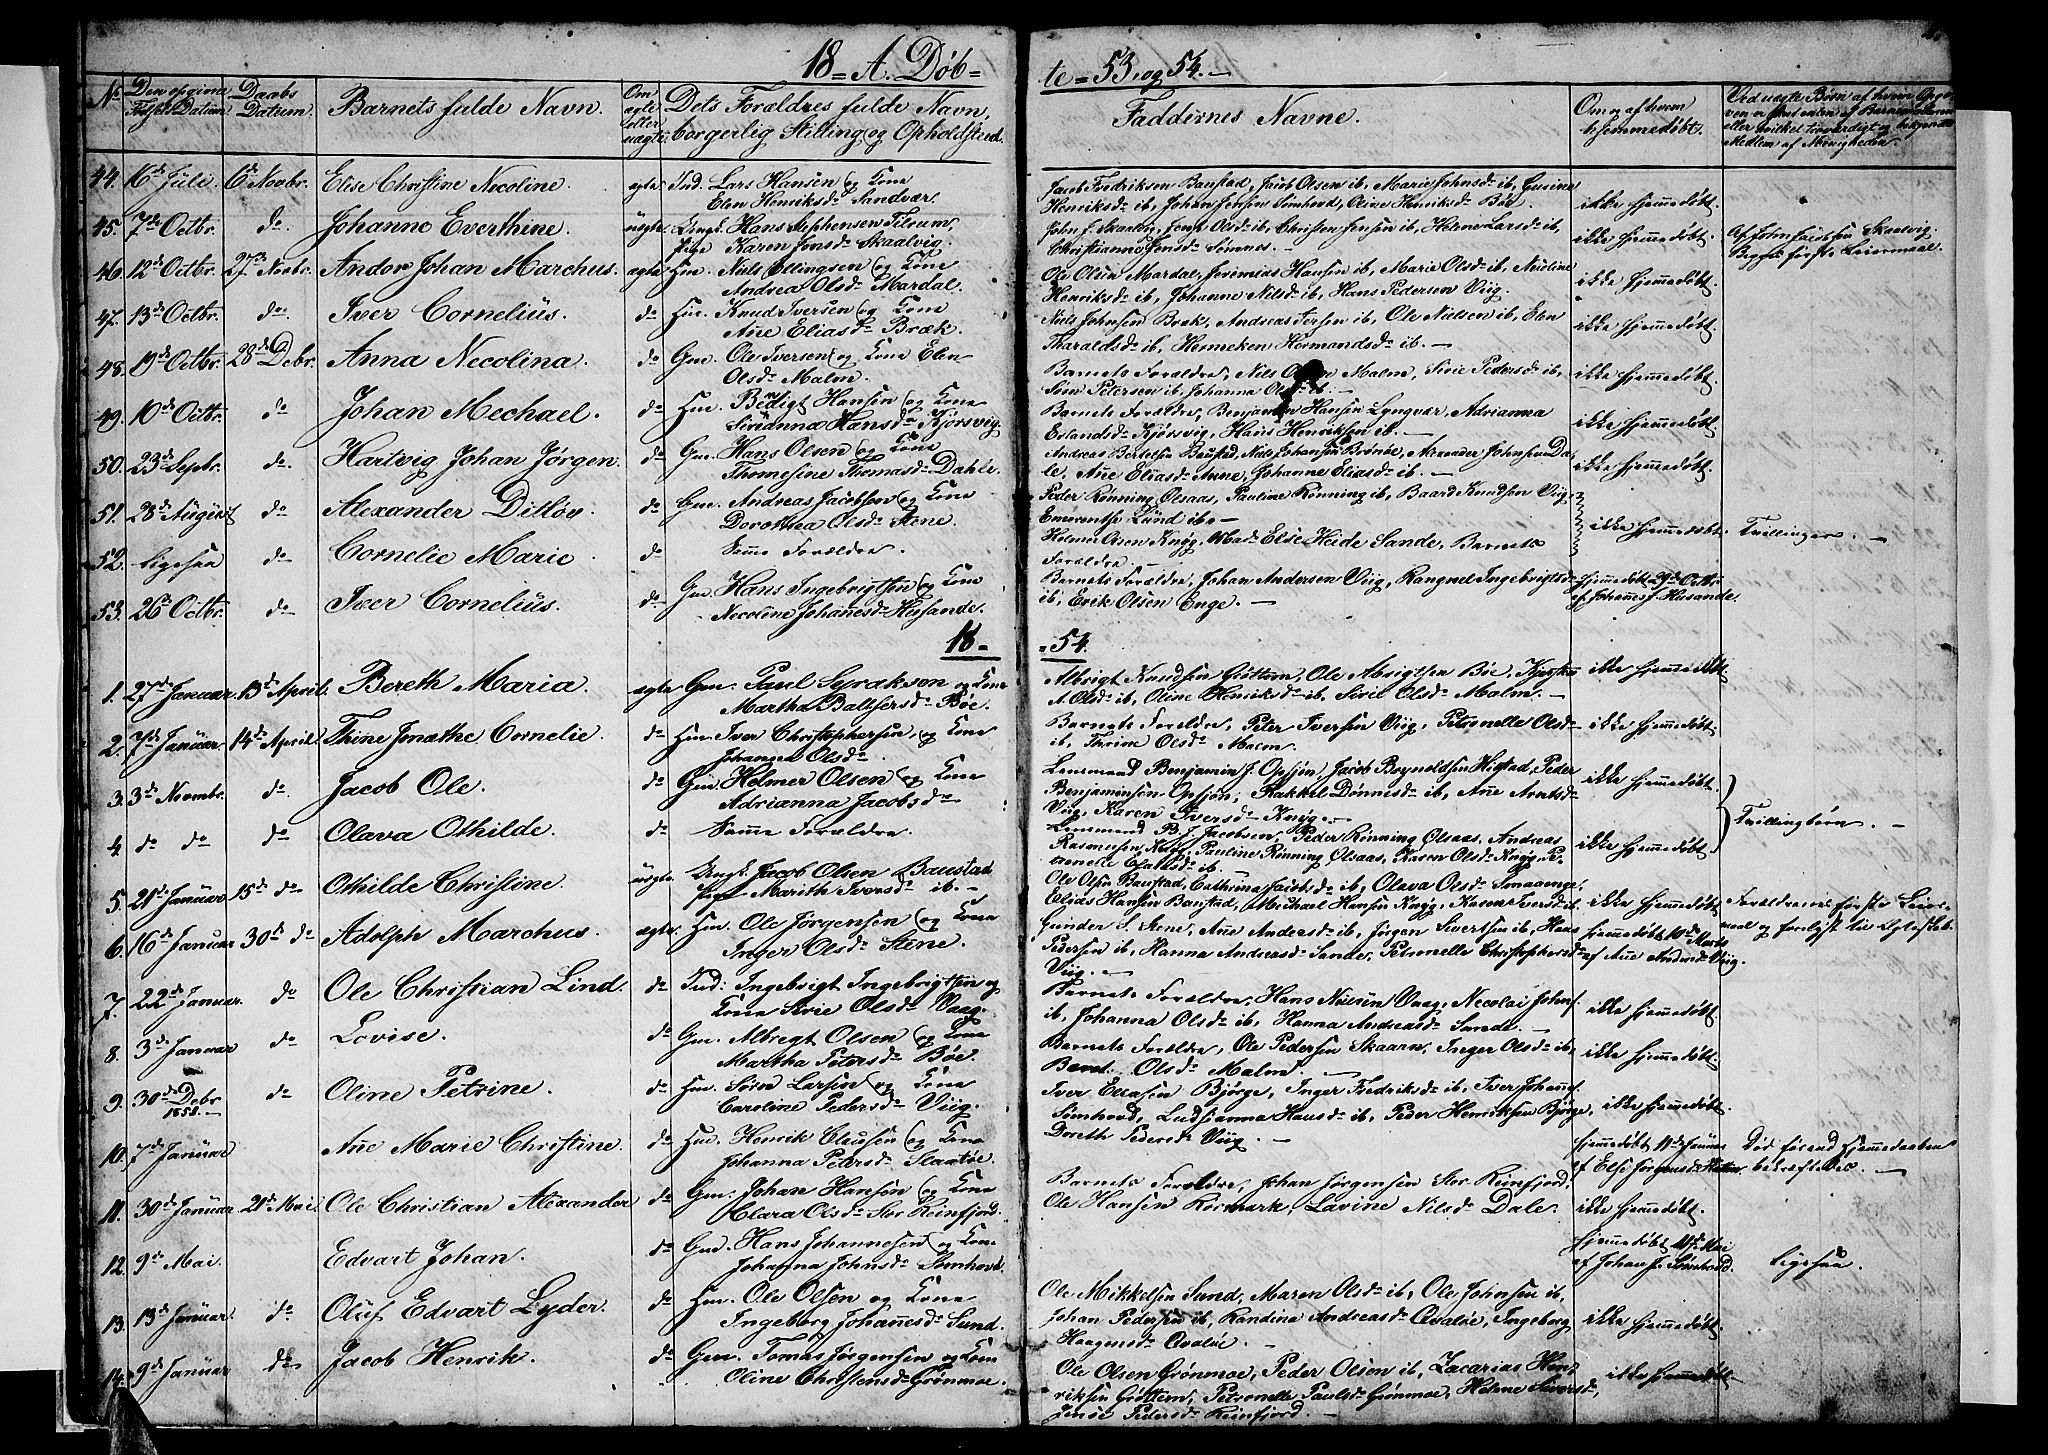 18 = A. Døb =
te = 53, og 54. —
No
Den opgivne
Fødsels Datum.
Daabs
Datum.
Barnets fulde Navn.
Om
ægte
eller
uægte
Dets Forældres fulde Navn,
borgerlig Stilling og Opholdsted.
Faddernes Navne.
Om og af hvem
hjemmedøbt.
44. 16de Juli. 6te Novbr. Elise Christine Nicoline. ægte Ind. Lars Hansen og Kone
Elen Henriksdr Sandvær.
Jacob Fredriksen Baustad, Jacob Olsen ib, Marie Johnsdr ib, Gurine
Henriksdr ib, Johan Jensen Sømhovd, Oline Henriksdr Bøe.
ikke hjemmedøbt.
45. 7de Octbr. do. Johanne Everthine. uægte Ungk. Hans Stephensen Titran,
Pige Karen Jonsdr Skaalvig.
John J. Skaalvig, Jens Olsdr ib, Christen Jensen ib, Helene Larsdr ib,
Christianne Jensdr Simnes.
ikke hjemmedøbt.
Af John Jacobsen Skaalvig.
Begges første Leiermaal.
46. 12te Octbr. 27de Novbr. Andor Johan Marchus. ægte Hm. Niels Ellingsen og Kone
Andrea Olsdr Mardal.
Ole Olsen Mardal, Jeremias Hansen ib, Marie Olsdr ib, Nicoline
Henriksdr ib, Johanne Nilsdr ib, Hans Pedersen Viig.
ikke hjemmedøbt.
47. 13de Octbr. do. Iver Cornelius. do Hm. Knud Iversen og Kone
Ane Eliasdr Bræk.
Niels Johnsen Bræk, Andreas Iversen ib, Ole Nielsen ib, Elen
Tharaldsdr ib, Henneken Hermandsdr ib. —
ikke hjemmedøbt.
48. 19de Octbr. 28de Debr. Anna Necolina. do Gm. Ole Iversen og Kone Elen
Olsdr Malm.
Barnets Forældre, Nils Olsen Malm, Sirie Pedersdr ib,
Søren Petersen ib, Johanna Olsdr ib. —
ikke hjemmedøbt.
49. 10de Octbr. do Johan Mechael. do Hm. Bendigt Hansen og Kone
Sirianna Hansdr Kjørsvig.
Barnets Forældre, Benjamin Hansen Lyngvær, Adrianna
Erlandsdr Kjørsvig, Hans Henriksen ib. —
ikke hjemmedøbt.
50. 23de Septbr. do. Hartvig Johan Jørgen. do Gm. Hans Olsen og Kone
Thomesine Thomasdr Dahle.
Andreas Bertelsen Baustad, Nils Johansen Brønøe, Alexander Johnsen Da=
le, Ane Eliasdr Aune, Johanne Eliasdr ib. —
ikke hjemmedøbt.
51. 28de August do Alexander Ditløv. do Gm. Andreas Jacobsen og Kone
Dorothea Olsdr Stene.
Peder Rønning Olsaas, Pauline Rønning ib, Baard Knudsen Viig,
Emerentse Lund ib. —
ikke hjemmedøbt. Tvillinger. —
52. Ligesaa do Cornelie Marie do Samme Forældre.
Helmer Olsen Knyg, Mad. Else Heide Sande, Barnets
Forældre. —
53. 26de Octbr. do Iver Cornelius. do Gm. Hans Ingebrigtsen og Kone
Nicoline Johanesdr Husande.
Barnets Forældre, Johan Andersen Viig, Rangnel Ingebrigtsdr
ib, Erik Olsen Enge. —
hjemmedøbt 29de Octbr
af Johanes J. Husande.
18 =
= 54.
1. 27de Januar. 13de April. Bereth Maria. ægte Gm. Paul Syrakson og Kone
Martha Baltsersdr Bøe.
Albrigt Knudsen Grøttem, Ole Abrigtsen Bøe, Kjersten
A. Olsdr ib, Oline Henriksdr ib, Siril Olsdr Malm. —
ikke hjemmedøbt
2. 7de Januar. 14de April. Thine Jonathe Cornelie. do Hm. Iver Christophersen og Kone
Johanna Olsdr
Barnets Forældre, Peter Iversen Viig, Petronelle Olsdr
ib, Thrine Olsdr Malm.
ikke hjemmedøbt.
3. 3de Novmbr. do. Jacob Ole. do Gm. Helmer Olsen og Kone
Adrianna Jacobsdr
Lensmand Benjamin J. Opsjøn, Jacob Reynoldsen Higtad, Peder
Benjaminsen Opsjøn, Rakkel Dønnesdr ib, Ane Arntsdr
Viig, Karen Iversdr Knyg. —
ikke hjemmedøbt.
Tvillingbørn. —
4. do do do Olava Othilde. do Samme Forældre.
Lensmand B. J. Jacobsen, Peder Rønning Olsaas, Andreas
Rasmussen Knyg, Pauline Rønning Olsaas, Karen Olsdr Knyg, Pe=
ikke hjemmedøbt.
5. 21de Januar 15de do Othilde Christine. uægte Ungk. Jacob Olsen Baustad
Pige Marith Iversdr ib. —
Ole Olsen Baustad, Cathrina Jacobsdr ib, Olava Olsdr Smaaenge,
Elias Hansen Baustad, Michael Hansen Knyg, Karen Iversdr ib.
ikke hjemmedøbt.
6. 16de Januar 30de do Adolph Marchus. ægte. Hm. Ole Jørgensen og Kone
Inger Olsdr Stene.
Gunder S. Stene, Ane Andersdr ib, Jørgen Sivertsen ib, Hans
Pedersen ib, Hanna Andreasdr Sande, Petronelle Christophersdr
Viig. —
hjemmedøbt 10de Marts
7. 22de Januar do Ole Christian Lind. do Ind: Ingebrigt Ingebrigtsen og
Kone Sirie Olsdr Vaag.
Barnets Forældre, Hans Nielsen Vaag, Necolai Johns.
ib, Johanna Olsdr ib, Hanna Andreasdr Sande. —
ikke hjemmedøbt.
8. 3de Januar do Lovise. do Gm. Albregt Olsen og Kone
Martha Petersdr Bøe.
Barnets Forældre, Ole Pedersen Skaarn, Inger Olsdr ib,
Beret Olsdr Malm.
ikke hjemmedøbt.
9. 30de Debr
1853. —
do Oline Petrine. do Hm. Søren Larsen og Kone
Caroline Pedersdr Viig.
Iver Ellefsen Bjørge, Inger Fredriksdr ib, Iver Johans.
Sømhovd, Ludsianna Hansdr ib, Peder Henriksen Bjørge,
Doreth Pedersdr Viig. —
ikke hjemmedøbt.
10. 7de Januar Ane Marie Christine. do Hm. Henrik Clausen og Kone
Johanna Petersdr Slaatøe.
hjemmedøbt 11de Januar
af Else Jørgensdr
Død førend Hjemmedaaben
bekræftedes. —
11. 30de Januar 21de Mai. Ole Christian Alexander do Gm. Johan Hansen og Kone
Clara Olsdr Stor Reinfjord.
Barnets Forældre, Johan Jørgensen Stor Reinfjord,
Ole Hansen Rørmark, Lavine Nilsdr Dale.
ikke hjemmedøbt.
12. 9de Mai. Edvart Johan. do Gmd. Hans Johannesen og Kone
Johanna Johnsdr Sømhovd.
hjemmedøbt 11te Mai
af Johan J. Sømhovd.
Ligesaa.
13. 13de Januar. do Oluf Edvart Lyder. do Hm. Ole Olsen og Kone
Ingeborg Johannesdr Sund.
Ole Mikkelsen Sund, Maren Olsdr ib, Ole Johnsen ib,
Johan Pedersen ib, Randina Andreasdr Qvaløe, Ingeborg
Haagensdr Qvaløe.
ikke hjemmedøbt.
14. 9de Januar do Jacob Henrik. do Gm. Tomas Jørgensen og Kone
Oline Christensdr Grønmoe.
Ole Olsen Grønmoe, Peder Olsen ib, Zacarias Hen=
riksen Grøttem, Petronelle Paulsdr Grønmoe, Helene Siversdr,
Jense Pedersdr Reinfjord. —
ikke hjemmedøbt